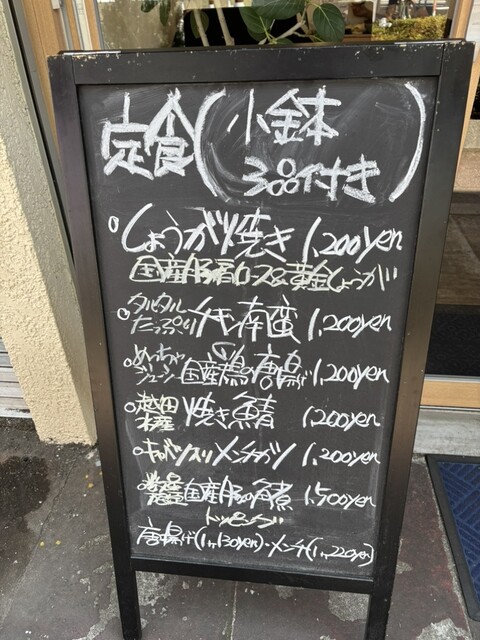 定食(小鉢
3品付き)
○しょうが焼き 1,200yen
国産豚肩ロース&黄金しょうが
○タルタルたっぷりチキン南蛮 1,200yen
○めっちゃジューシー国産鶏の唐揚げ 1,200yen
○焼き鯖 1,200yen
○キャベツ入りメンチカツ 1,200yen
国産豚の角煮 1,500yen
トッピング
唐揚げ(1ヶ130yen)・メンチ(1ヶ220yen)